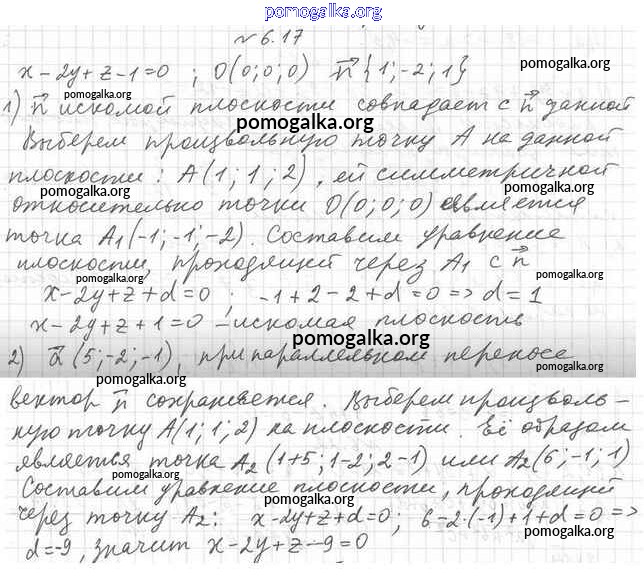 pomogalka.org
№ 6.17
x - 2y + z - 1 = 0 ; O(0; 0; 0) n⃗ {1; -2; 1}
pomogalka.org
1) n⃗ искомой плоскости совпадает с n⃗ данной
pomogalka.org
Выберем произвольную точку А на данной
плоскости: А(1; 1; 2), ей симметричной
pomogalka.org pomogalka.org
относительно точки О(0; 0; 0) является
точка А₁(-1; -1; -2). Составим уравнение
pomogalka.org
плоскости, проходящей через А₁ с n⃗
pomogalka.org pomogalka.org
x - 2y + z + d = 0 ; -1 + 2 - 2 + d = 0 => d = 1
x - 2y + z + 1 = 0 - искомая плоскость
pomogalka.org
2) a⃗ (5; -2; -1), при параллельном переносе
pomogalka.org pomogalka.org
вектор n⃗ сохраняется. Выберем произволь-
pomogalka.org
ную точку А(1; 1; 2) на плоскости. Её образом
является точка А₂(1+5; 1-2; 2-1) или А₂(6; -1; 1)
pomogalka.org
Составим уравнение плоскости, проходящей
pomogalka.org pomogalka.org
через точку А₂: x - 2y + z + d = 0, 6 - 2·(-1) + 1 + d = 0 =>
pomogalka.org
d = -9, значит x - 2y + z - 9 = 0